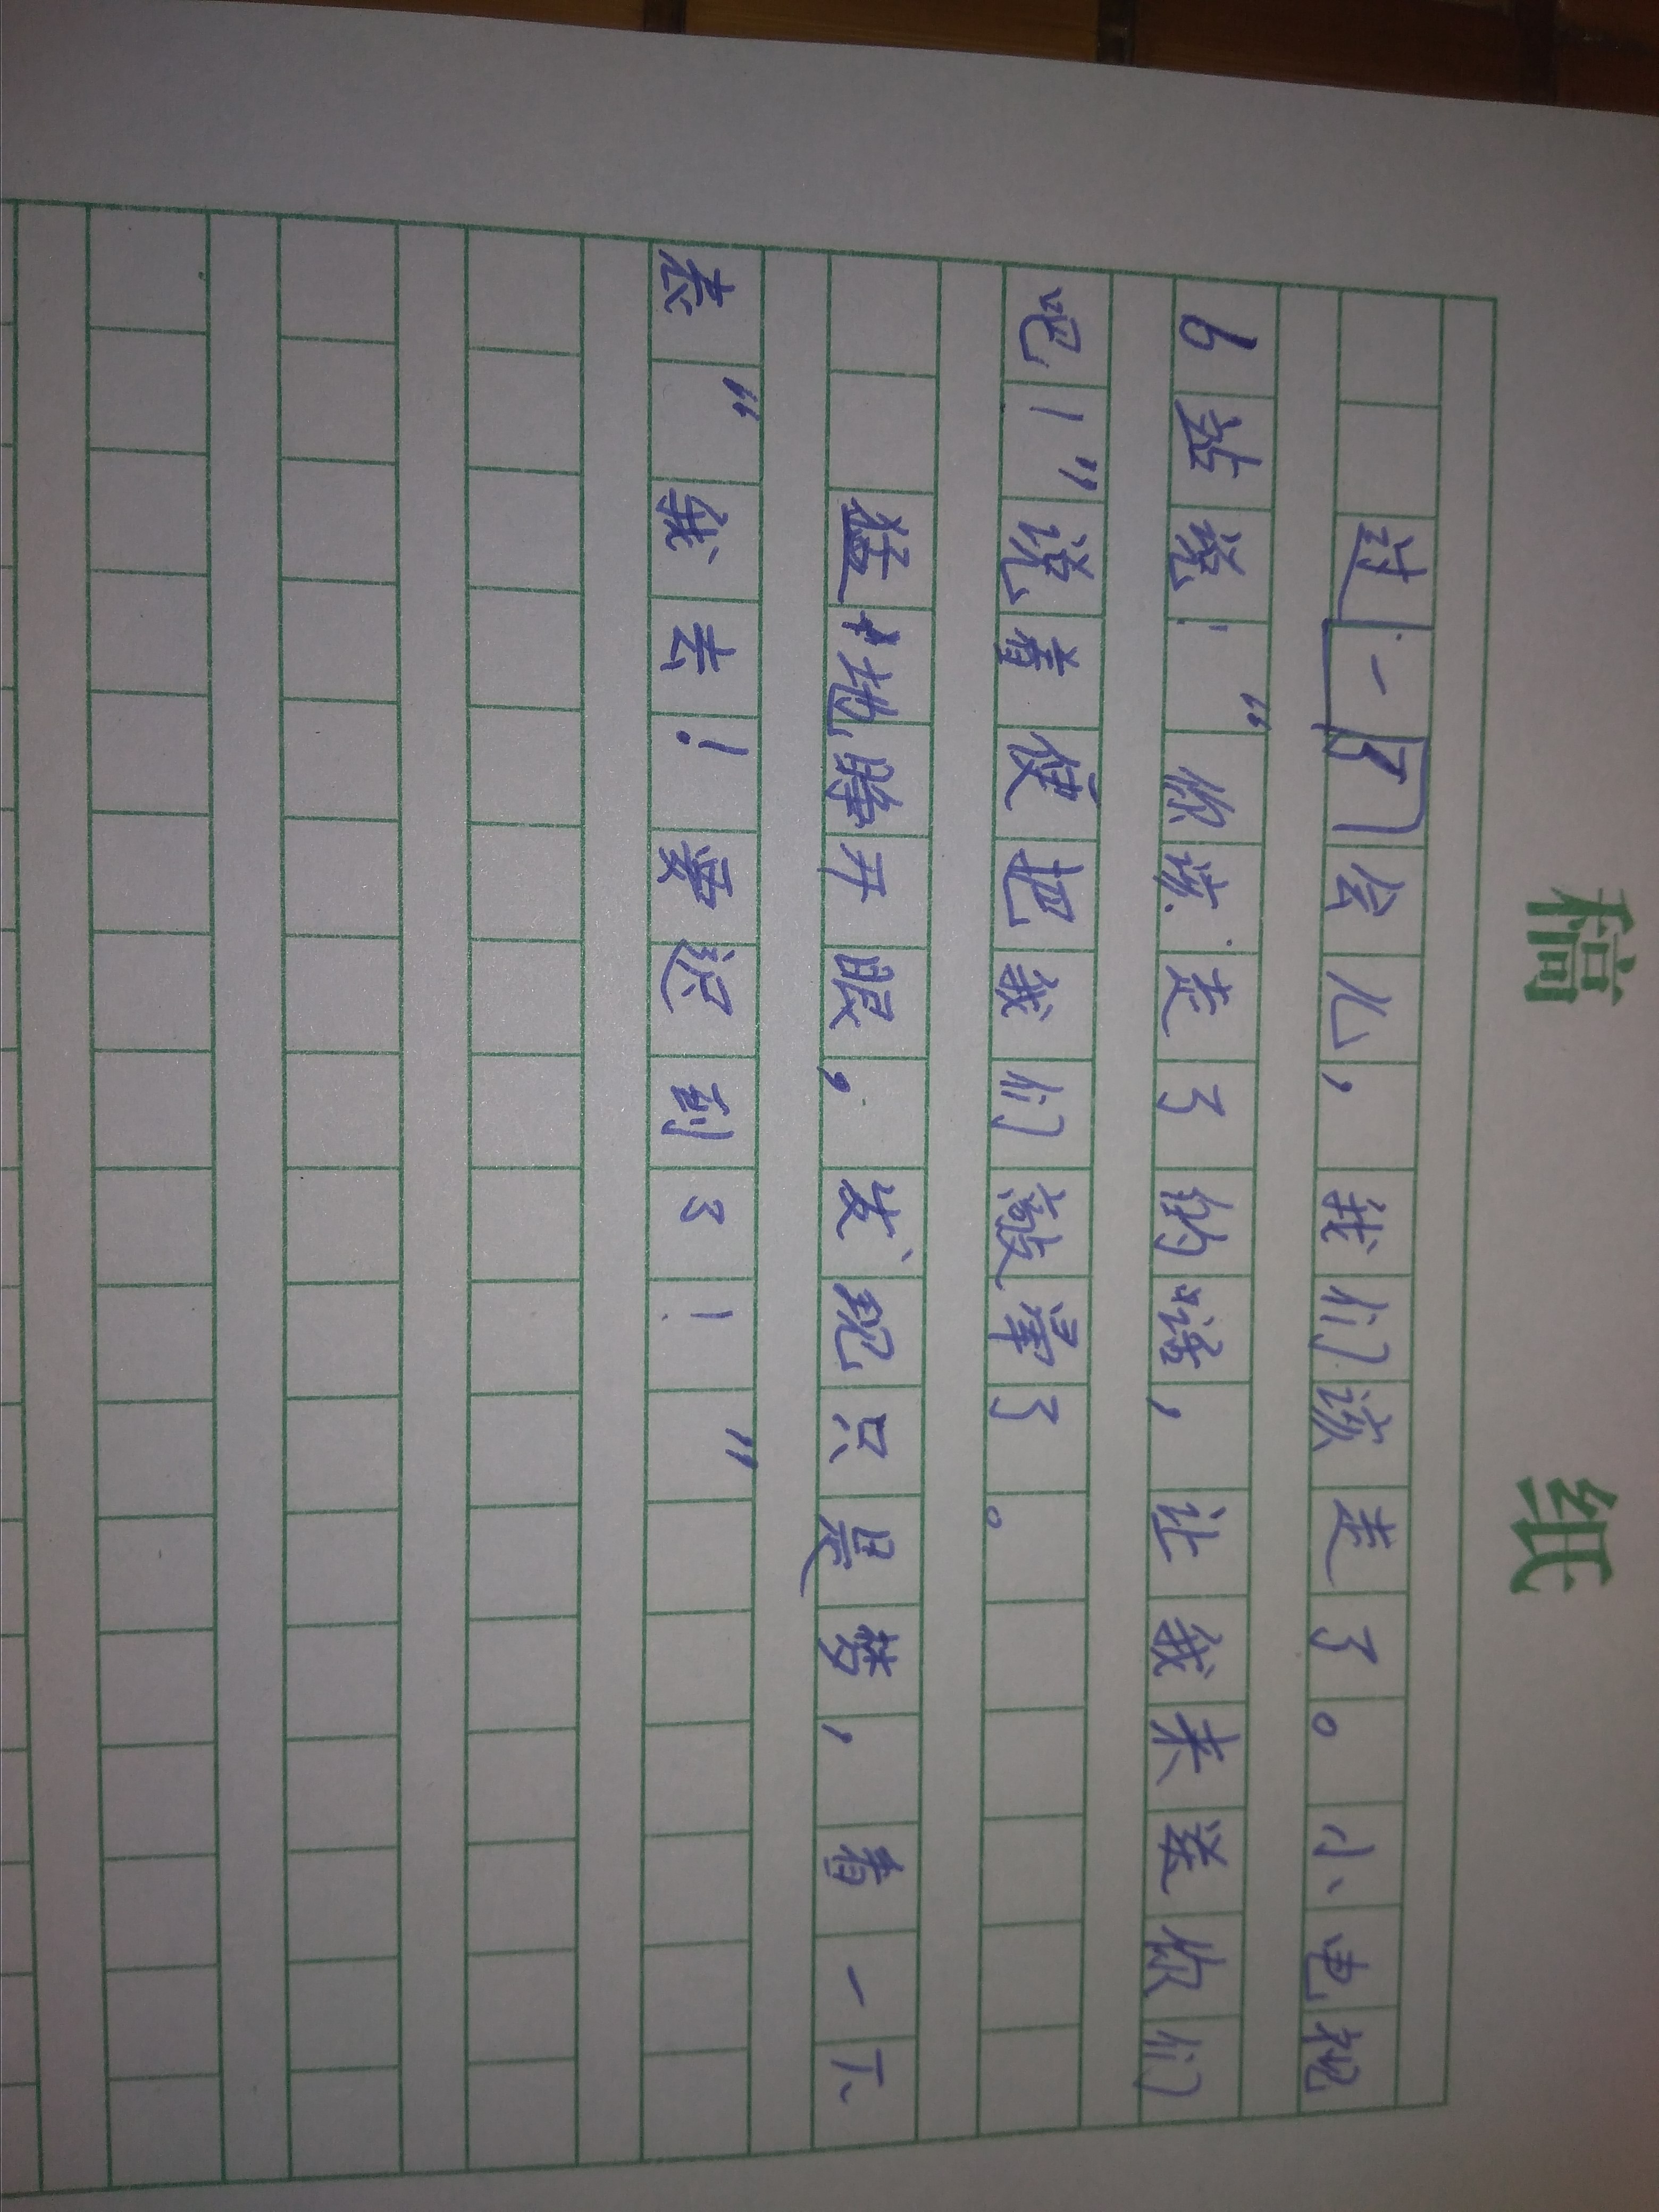 稿 纸
过一了会儿，我们该走了。小电视
6站说：“你该走了的话，让我来送你们
吧！”说着便把我们敲晕了。
猛地睁开眼，发现只是梦，看一下
表“我去！要迟到了！”